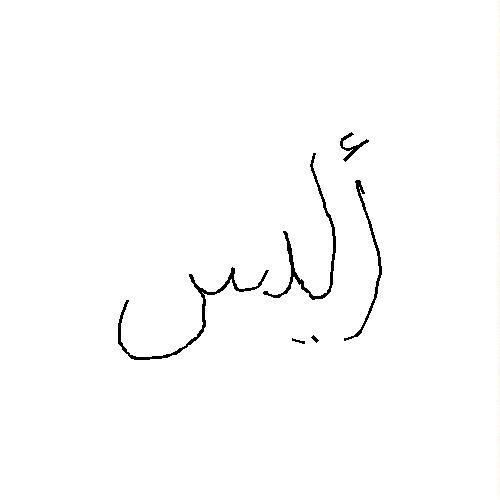 أليس